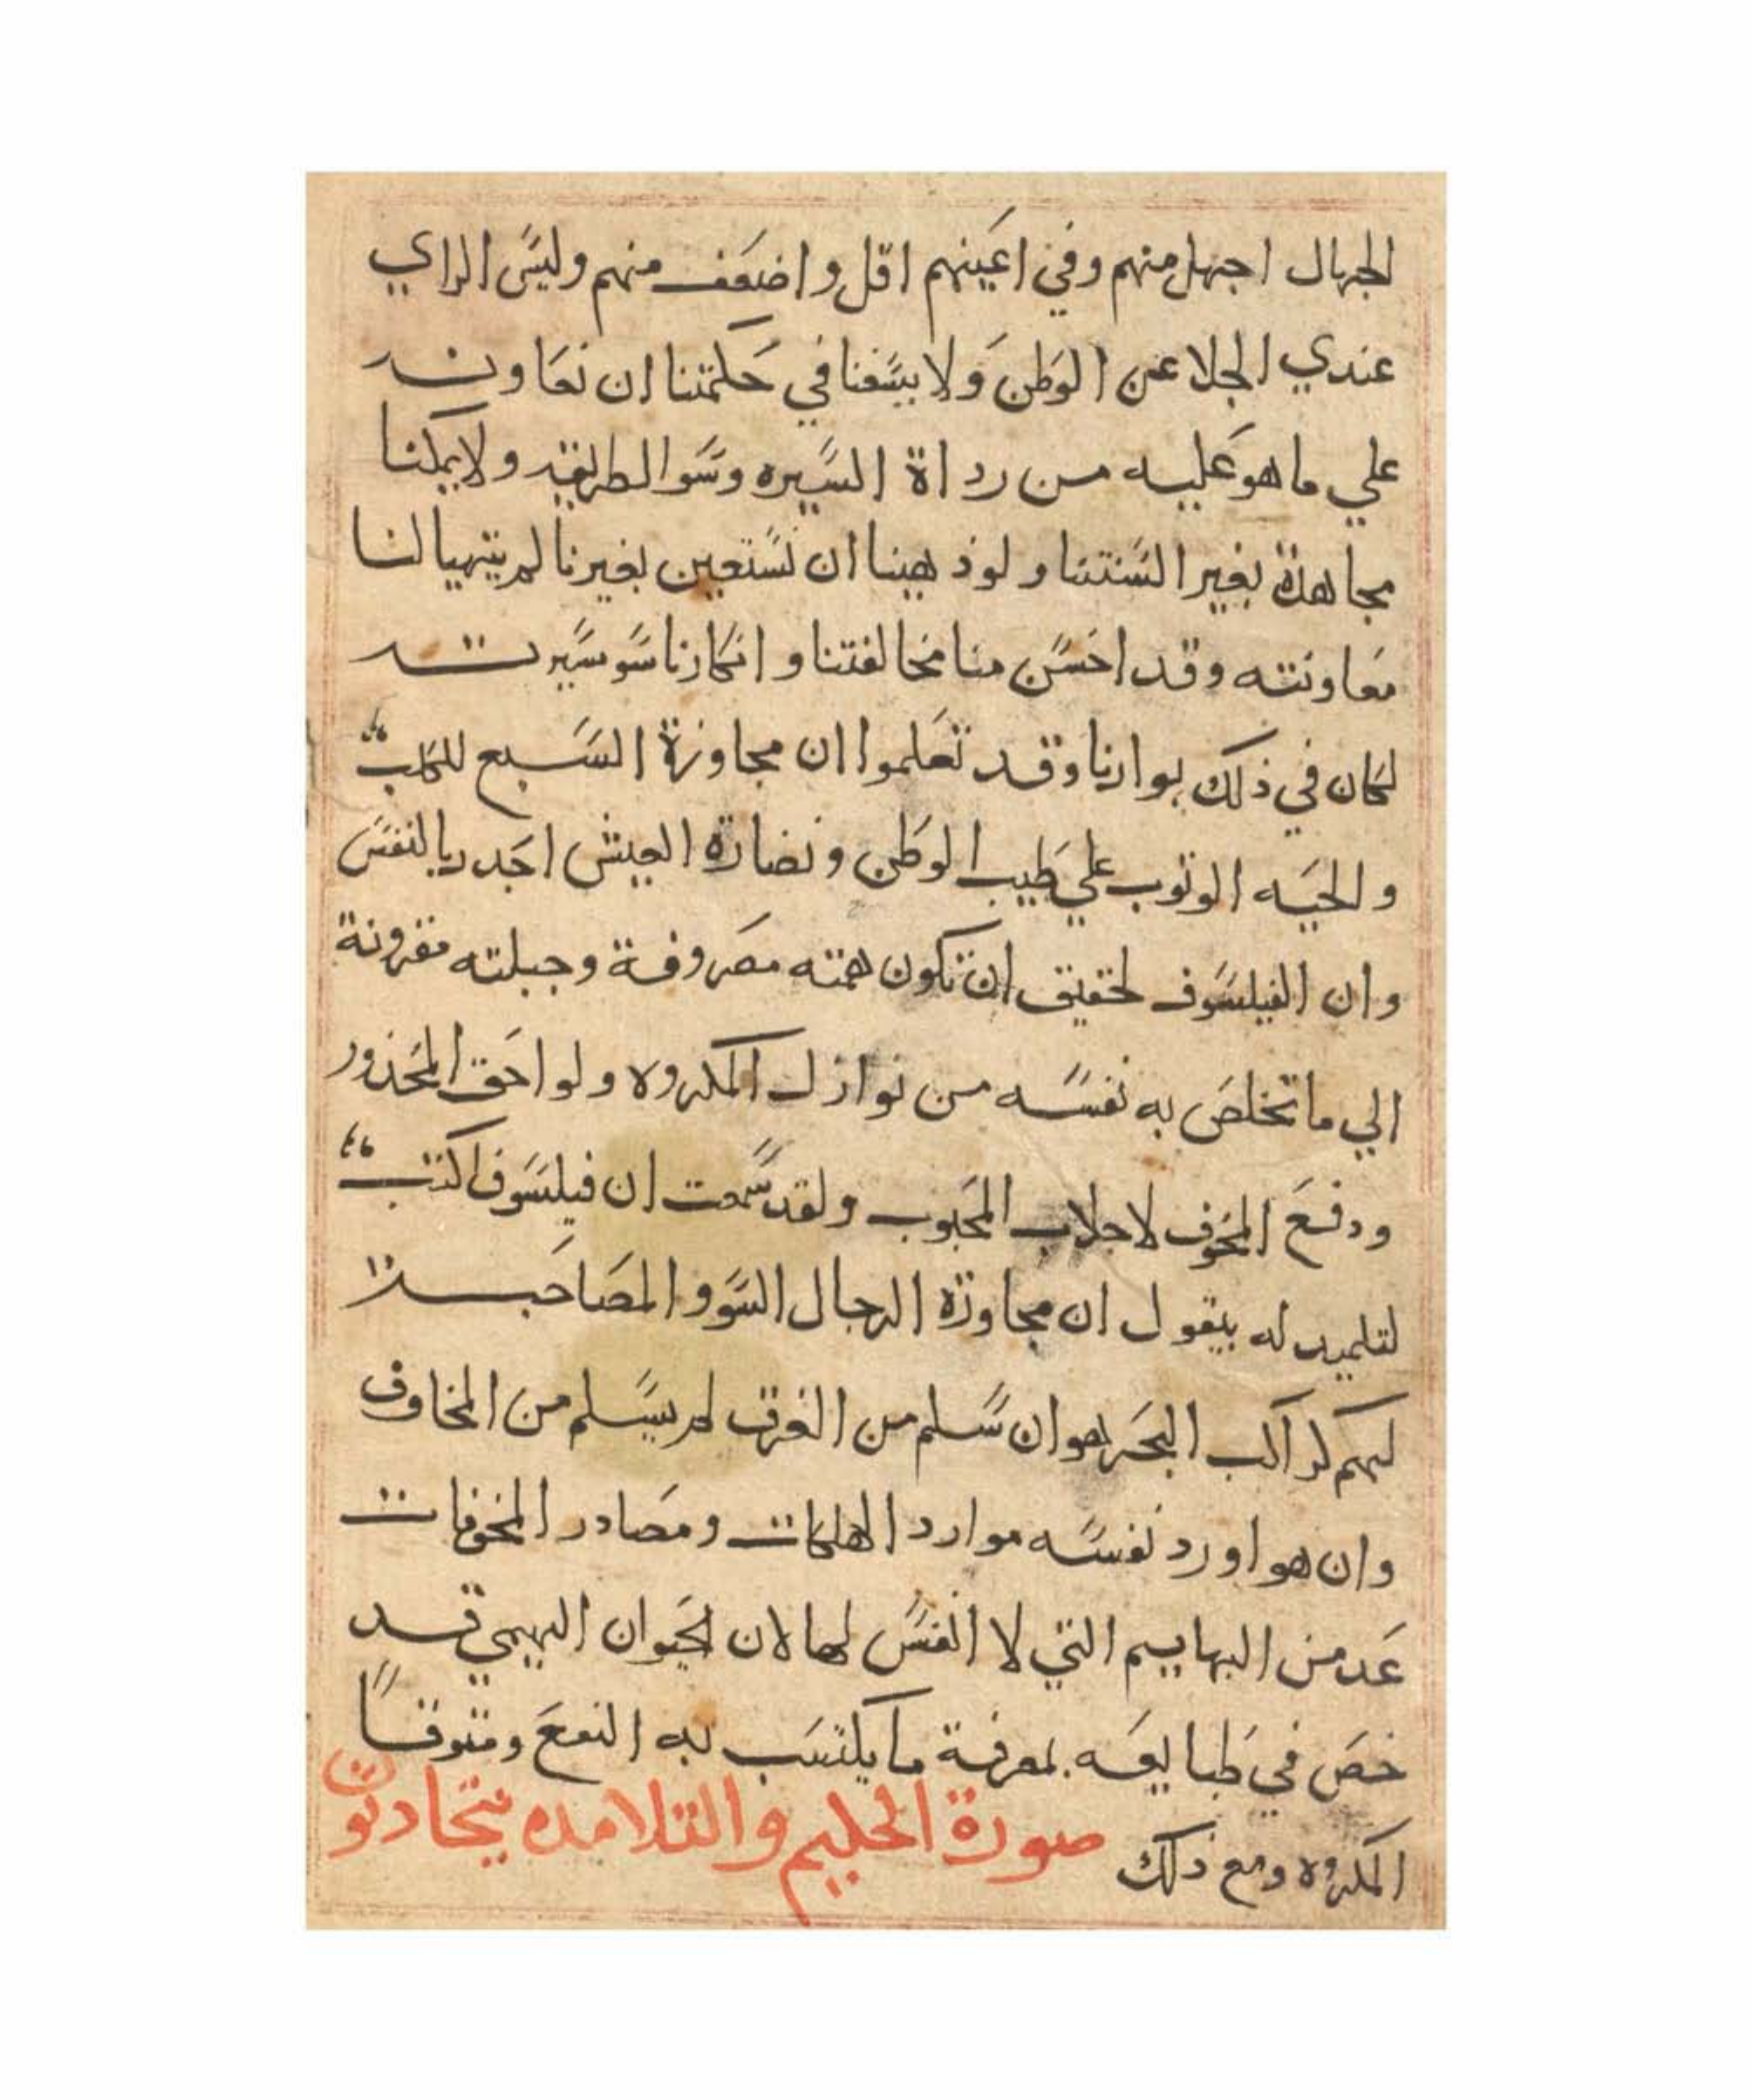 الجهال اجهل منهم وفي اعينهم اقل واضعف منهم وليس الراي
عندي الجلا عن الوطن ولا يسعنا في حكمتنا ان نعاونه
علي ما هو عليه من رداة السيره وسوا الطريقه ولا يمكنا
مجاهدة بغير السنتنا ولو ذهبنا ان نستعين بغيرنا لم يتهيا لنا
معاونته وقد احسن منا مخالفتنا وانكارنا سو سيرته
لكان في ذلك بوارنا وقد تعلموا ان مجاورة السبع للكلب
والحيه الوثوب علي طيب الوطن ونضارة العيش اجدر بالنفس
وان الفيلسوف لحقيق ان تكون همته مصروفة وجبلته مقرونة
الي ما تخلص به نفسه من نوازل المكروه ولواحق المحذور
ودفع المخوف لاجلاب المحبوب ولقد سمعت ان فيلسوفا كتب
لتلميد له بيقول ان مجاورة الرجال السوو المصاحبة
لهم كراكب البحر هو ان سلم من الغرق لم يسلم من المخاوف
وان هو اورد نفسه موارد الهلكات ومصادر المخوفات
عد من البهاييم التي لا انفس لها لان الحيوان البهيمي قد
خص في طبايعه بمعرفة ما يكتسب به النفع ومتوقاً
المكروه ومع ذلك صورة الحكيم والتلامده يتحادثون